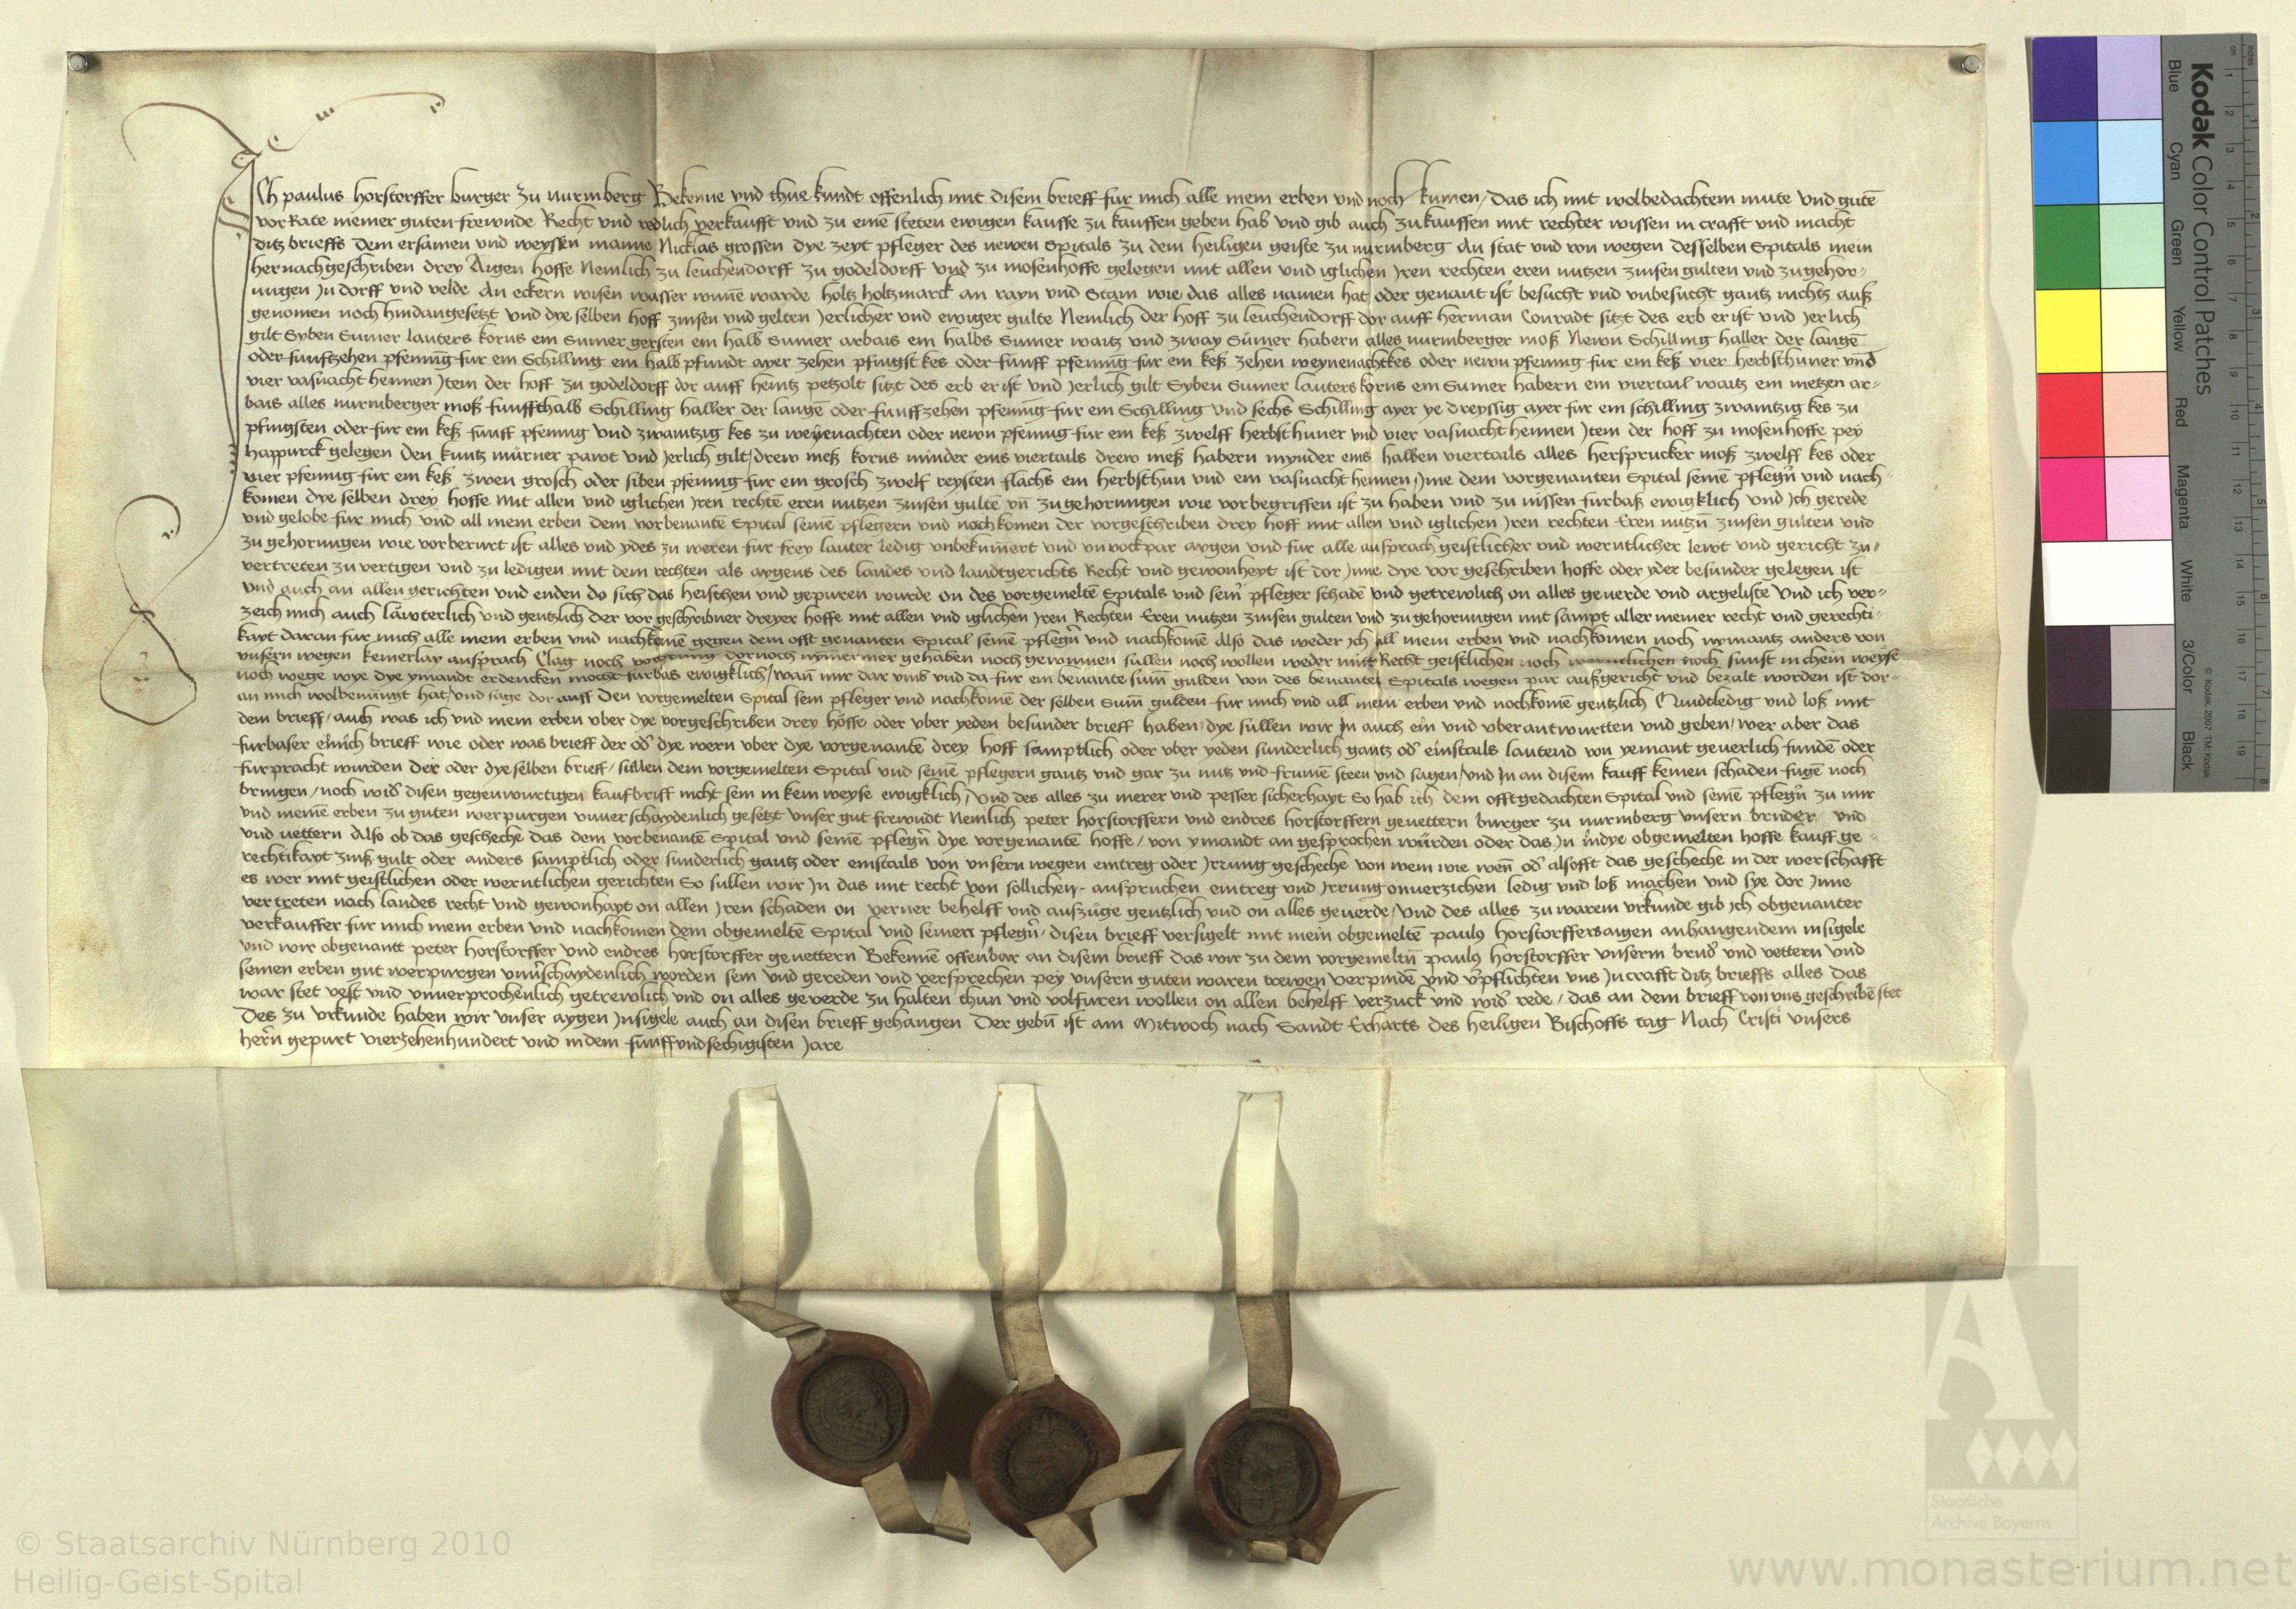 Ich paulus horstorffer burger zu nurmberg Bekenne und thue kundt offenlich mit disem brieff fur mich alle mein erben und noch kumen / das ich mit wolbedachtem mute und gutē
vor Rate meiner guten frewnde Recht und redlich verkaufft und zu einē steten ewigen kauffe zu kauffen geben hab und gib auch zu kauffen mit rechter wissen in crafft und macht
ditz brieffs Dem ersamen und weysen manne Nicklas grossen dye zeyt pfleger des newen Spitals zu dem heiligen geiste zu nurmberg An stat und von wegen desselben Spitals mein
hernachgeschriben drey Aigen hoffe Nemlich zu leuchendorff zu godeldorff und zu mosenhoffe gelegen mit allen und iglichen Jren rechten eren nutzen zinsen gulten und zugehor-
ungen Jn dorff und velde An eckern wisen wasser wunē wayde holtz holtzmarck an rayn und Stam wie das alles namen hat oder genant ist besucht und unbesucht gantz nichtz auß
genomen noch hindangesetzt und dye selben hoff zinsen und gelten Jerlicher und ewiger gulte Nemlich der hoff zu leuchendorff dor auff herman Conradt sitzt des erb er ist und Jerlich
gilt Syben Sumer lauters korns ein Sumer gersten ein halb Sumer arbais ein halbs Sumer waitz und zway Sumer habern alles nurmberger moß Newn Schilling haller der langē
oder funfftzehen pfennig fur ein Schilling ein halb pfundt ayer zehen pfingst kes oder funff pfennig fur ein keß zehen weynenachtkes oder newn pfennig fur ein keß vier herbsthuner und
vier vasnacht hennen Jtem der hoff zu godeldorff dor auff heintz petzolt sitzt des erb er ist und Jerlich gilt Syben Sumer lauters korns ein Sumer habern ein viertail waitz ein metzen ar-
bais alles nurmberger moß funffthalb Schilling haller der langē oder funffzehen pfennig fur ein Schilling und sechs Schilling ayer ye dreyssig ayer fur ein schilling zwaintzig kes zu
pfingsten oder fur ein keß funff pfennig und zwaintzig kes zu weyenachten oder newn pfennig fur ein keß zwelff herbsthuner und vier vasnacht hennen Jtem der hoff zu mosenhoffe pey
happurck gelegen den kuntz murner pawt und Jerlich gilt / drew meß korns minder eins viertails drew meß habern mynder eins halben viertails alles hersprucker moß zwelff kes oder
vier pfennig fur ein keß zwen grosch oder siben pfennig fur ein grosch zwelf reysten flachs ein herbsthun und ein vasnacht hennen Jme dem vorgenanten Spital seinē pflegn̄ und nach-
komen dye selben drey hoffe mit allen und iglichen Jren rechtē eren nutzen zinsen gultē un̄ zugehorungen wie vorbegriffen ist zu haben und zu nissen furbaß ewigklich und Jch gerede
und gelobe fur mich und all mein erben dem vorbenantē Spital seinē pflegern und nochkomen der vorgeschriben drey hoff mit allen und iglichen Jren rechten Eren nutzn̄ zinsen gulten und
zu gehorungen wie vorberurt ist alles und ydes zu weren fur frey lauter ledig unbekumert und unvockpar aygen und fur alle ansprach geistlicher und werntlicher lewt und gericht zu-
vertreten zu vertigen und zu ledigen mit dem rechten als aygens des landes und landtgerichts Recht und gewonheyt ist dor Jnne dye vor geschriben hoffe oder yder besunder gelegen ist
und auch an allen gerichten und enden do sich das heischen und gepuren wurde on des vorgemeltē Spitals und sein̄ pfleger schadē und getrewlich on alles geverde und argeliste Und ich ver-
zeich mich auch lawterlich und gentzlich der vor geschribner dreyer hoffe mit allen und iglichen Jren Rechten Eren nutzen zinsen gulten und zu gehorungen mit sampt aller meiner recht und gerechti-
kayt daran fur mich alle mein erben und nachkomē gegen dem offt genanten Spital seinē pflegn̄ und nachkomē Also das weder ich all mein erben und nachkomen noch nymantz anders von
unsern wegen keinerlay ansprach Clag noch vordrung dornoch nymermer gehaben noch gewinnen sullen noch wollen weder mit Recht geistlichen noch werntlichen noch sunst in chein weyse
noch wege wye dye ymandt erdencken mocht furbas ewigklich / wan̄ mir dar umb und da fur ein benante sum̄ gulden von des benanten Spitals wegen par außgericht und bezalt worden ist dor-
an mich wolbenumt hat / und sage dor auff Den vorgemelten Spital sein pfleger und nachkomē der selben Sum̄ gulden fur mich und all mein erben und nochkomē gentzlich Quidtledig und loß mit
dem brieff / auch was ich und mein erben uber dye vorgeschriben drey hoffe oder uber yeden besunder brieff haben dye sullen wir Jn auch ein und uberantwurtten und geben / wer aber das
furbaser einich brieff wie oder was brieff der od̄ dye wern uber dye vorgenantē drey hoff samptlich oder uber yeden sunderlich gantz od̄ einstails lautend von yemant geverlich fundē oder
furpracht wurden der oder dye selben brieff / sullen dem vorgemelten Spital und seinē pflegern gantz und gar zu nutz und frumē steen und sagen / und Jn an disem kauff keinen schaden fugē noch
bringen / noch wid̄ disen gegenwurtigen kaufbriff nicht sein in kein weyse ewigklich / Und des alles zu merer und pesser sicherhayt So hab ich dem offtgedachten Spital und seinē pflegn̄ zu mir
und meinē erben zu guten werpurgen unverschaydenlich gesetzt unser gut frewndt Nemlich peter horstorffern und endres horstorffern gevettern burger zu nurmberg unsern bruder und
und vettern Also ob das geschehe das dem vorbenantē Spital und seinē pflegn̄ dye vorgenantē hoffe / von ymandt an gesprochen wurden oder das Jn indye obgemelten hoffe kauff ge-
rechtikayt zinß gult oder anders samptlich oder sunderlich gantz oder einstails von unsern wegen eintreg oder Jrrung geschehe von wem wie wen̄ od̄ alsofft das geschehe in der werschafft
es wer mit geistlichen oder werntlichen gerichten So sullen wir Jn das mit recht von sollichen ansprüchen eintreg und Jrrung onverzichen ledig und loß machen und sye dor Jnne
vertreten nach landes recht und gewonhayt on allen Jren schaden on verner behelff und außzüge gentzlich und on alles geverde / Und des alles zu warem urkunde gib ich obgenanter
verkauffer fur mich mein erben und nachkomen dem obgemeltē Spital und seinen pflegn̄ / disen brieff versigelt mit mein obgemeltē paulus horstorffers aigen anhangendem insigele
und wir obgenantt peter horstorffer und endres horstorffer gevettern Bekennē offenbar an disem brieff das wir zu dem vorgemeltn̄ paulus horstorffer unserm brud̄ und vettern und
seinen erben gut werpurgen unv̄schaydenlich worden sein und gereden und versprechen pey unsern guten waren trewen verpindē und v̄pflichten uns Jn crafft ditz brieffs alles das
war stet vest und unverprochenlich getrewlich und on alles geverde zu halten thun und volfuren wollen on allen behelff verzuck und wid̄ rede / das an dem brieff von uns geschribē stet
Des zu urkunde haben wir unser aygen Jnsigele auch an disen brieff gehangen Der gebn̄ ist am Mitwoch nach Sandt Erharts des heiligen Bischoffs tag Nach Cristi unsers
hern̄ gepurt vierzehenhundert und in dem funffundsechigisten Jare
Kodak Color Control Patches
Blue Cyan Green Yellow Red Magenta White 3/Color Black
© Kodak, 2007 TM: Kodak
© Staatsarchiv Nürnberg 2010
Heilig-Geist-Spital
Staatliche
Archive Bayerns
www.monasterium.net